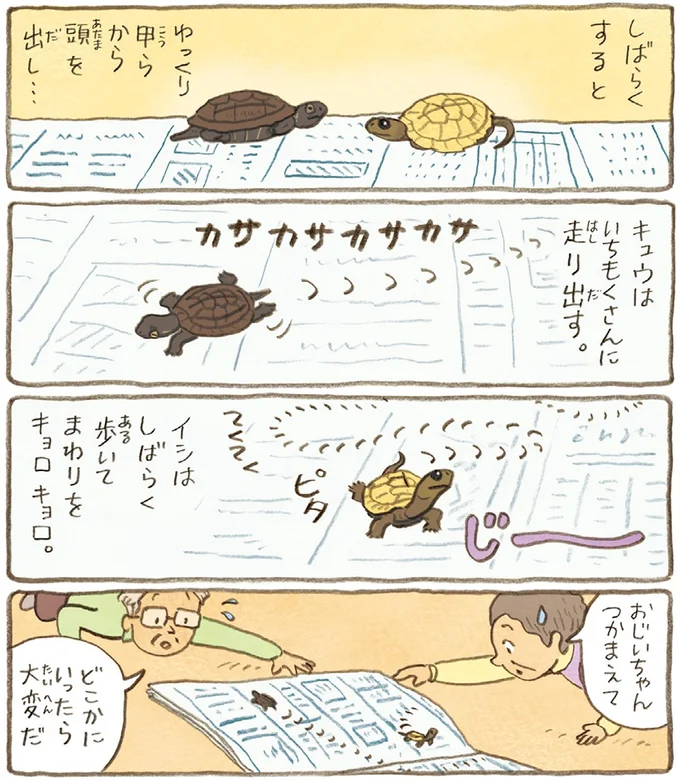 しばらく
すると
ゆっくり
甲ら
から
頭を
出し…
キュウは
いちもくさんに
走り出す。
カサカサカサカサ
てくてく
ピタ
じー
イシは
しばらく
歩いて
まわりを
キョロキョロ。
おじいちゃん
つかまえて
どこかに
いったら
大変だ